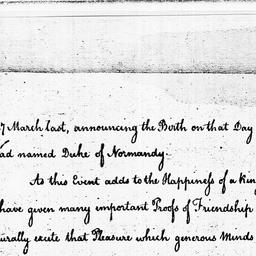 7 March last, announcing the Birth on that Day
ad named Duke of Normandy.
As this Event adds to the Happiness of a King
have given many important Proofs of Friendship
urally excite that Pleasure which generous Minds